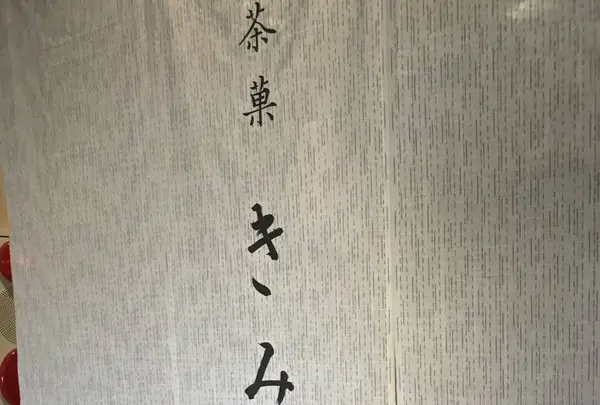 茶菓
きみ